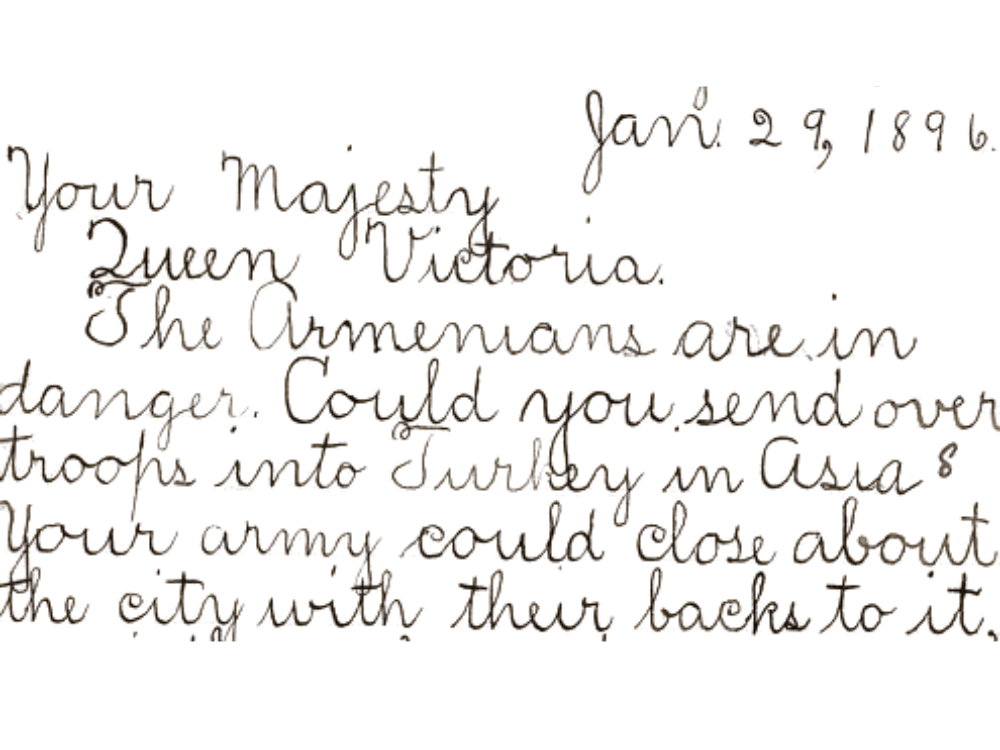 Jan. 29, 1896.
Your Majesty
Queen Victoria.
The Armenians are in
danger. Could you send over
troops into Turkey in Asia &
Your army could close about
the city with their backs to it.